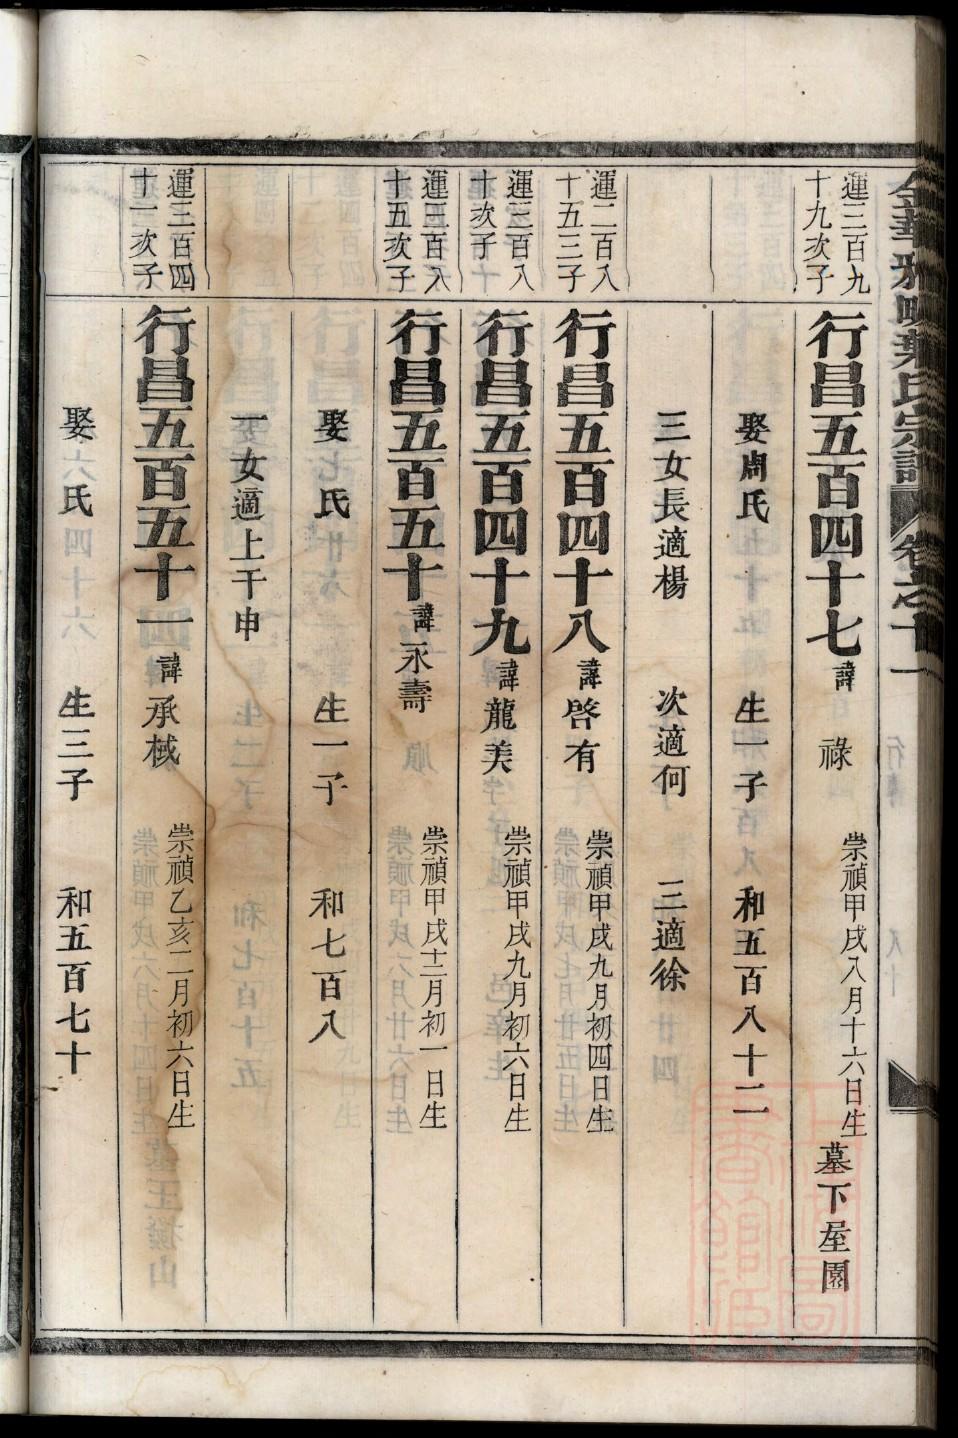 金華 葉氏宗譜 卷之十一
運三百九
十九次子
行昌五百四十七 諱 祿 崇禎甲戌八月十六日生 墓下屋園
娶周氏 生一子 和五百八十二
三女長適楊 次適何 三適徐
運二百八
十五三子
行昌五百四十八 諱啓有 崇禎甲戌九月初四日生
運三百八
十次子
行昌五百四十九 諱龍美 崇禎甲戌九月初六日生
運三百八
十五次子
行昌五百五十 諱永壽 崇禎甲戌十二月初一日生
娶 氏 生一子 和七百八
一女適上干申
運三百四
十二次子
行昌五百五十一 諱承棫 崇禎乙亥二月初六日生
娶 氏 生三子 和五百七十